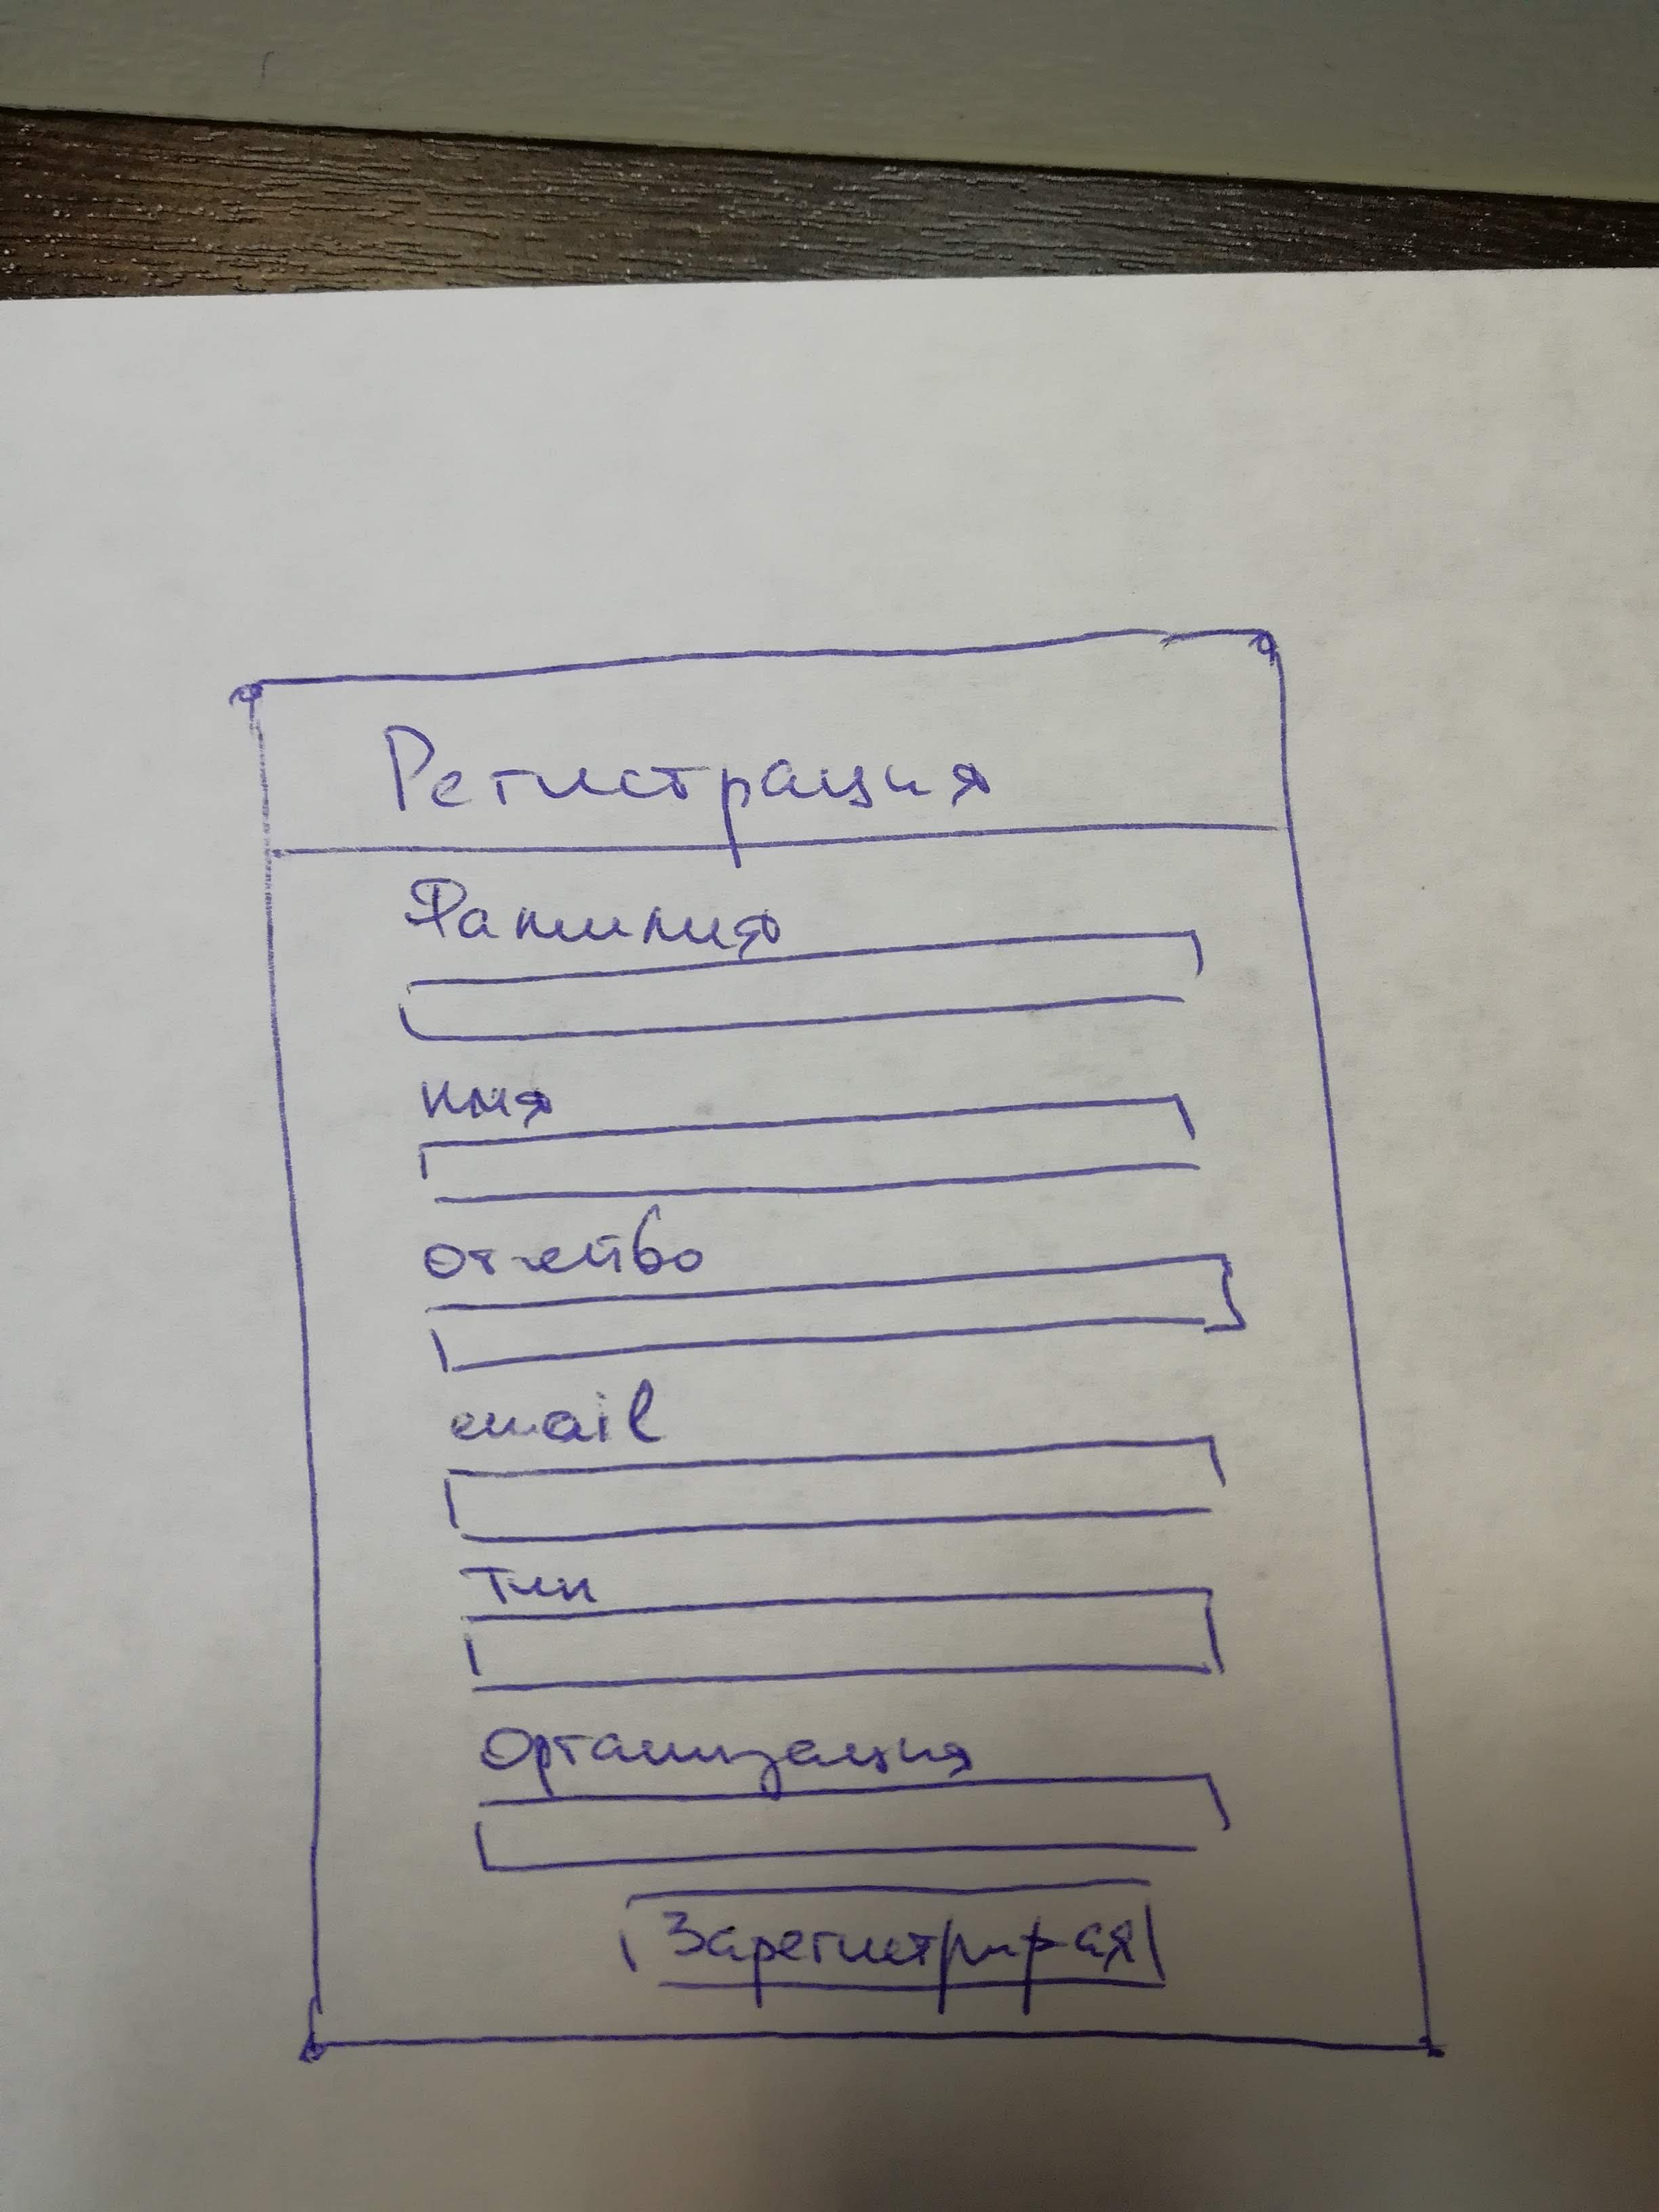 Регистрация
Фамилия
имя
отчество
email
Тип
Организация
Зарегистрир-ая